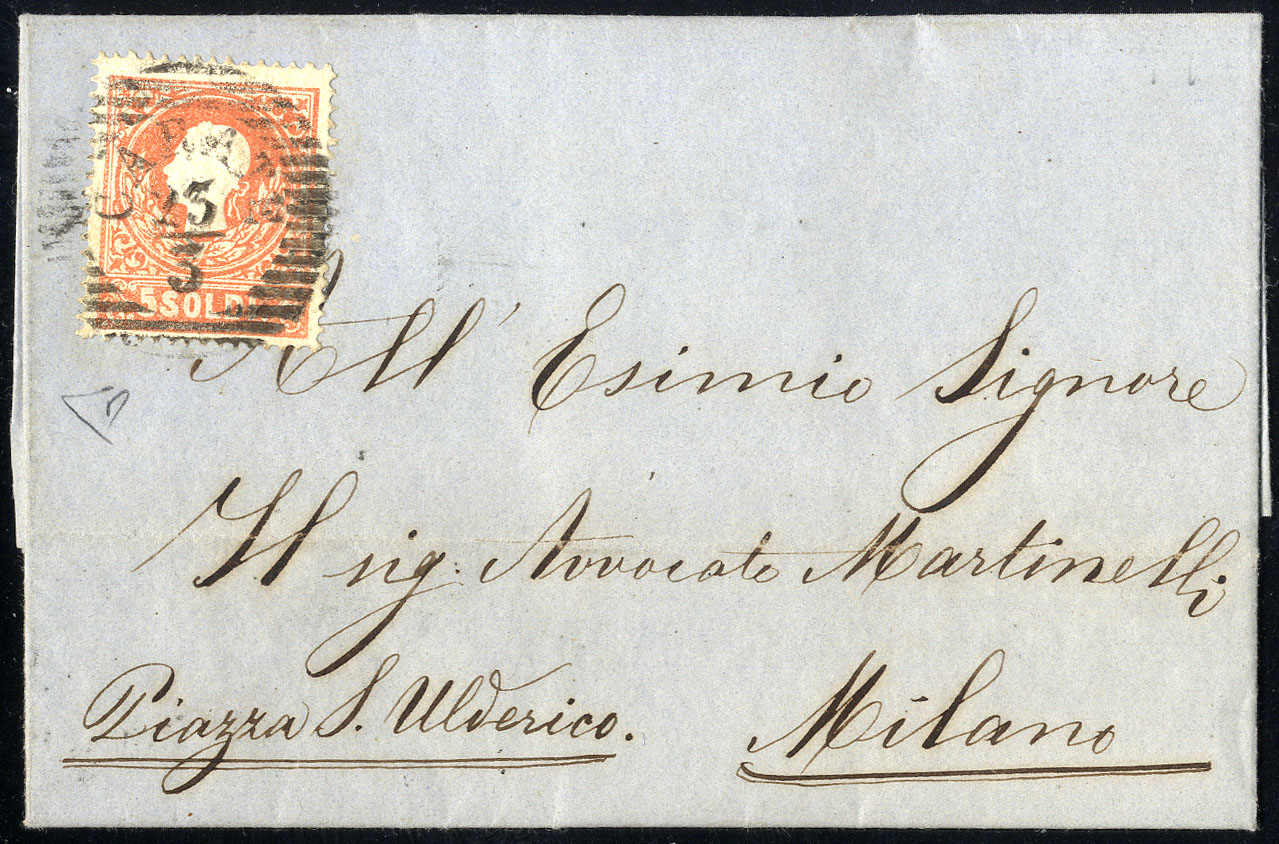 5 SOLDI
All' Esimio Signore
Il sig: Avvocato Martinelli
Piazza S. Ulderico.
Milano